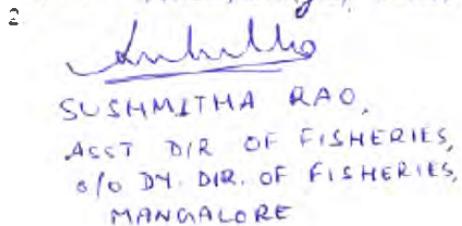 2
SUSHMITHA RAO,
ASST DIR OF FISHERIES,
O/O DY. DIR. OF FISHERIES,
MANGALORE